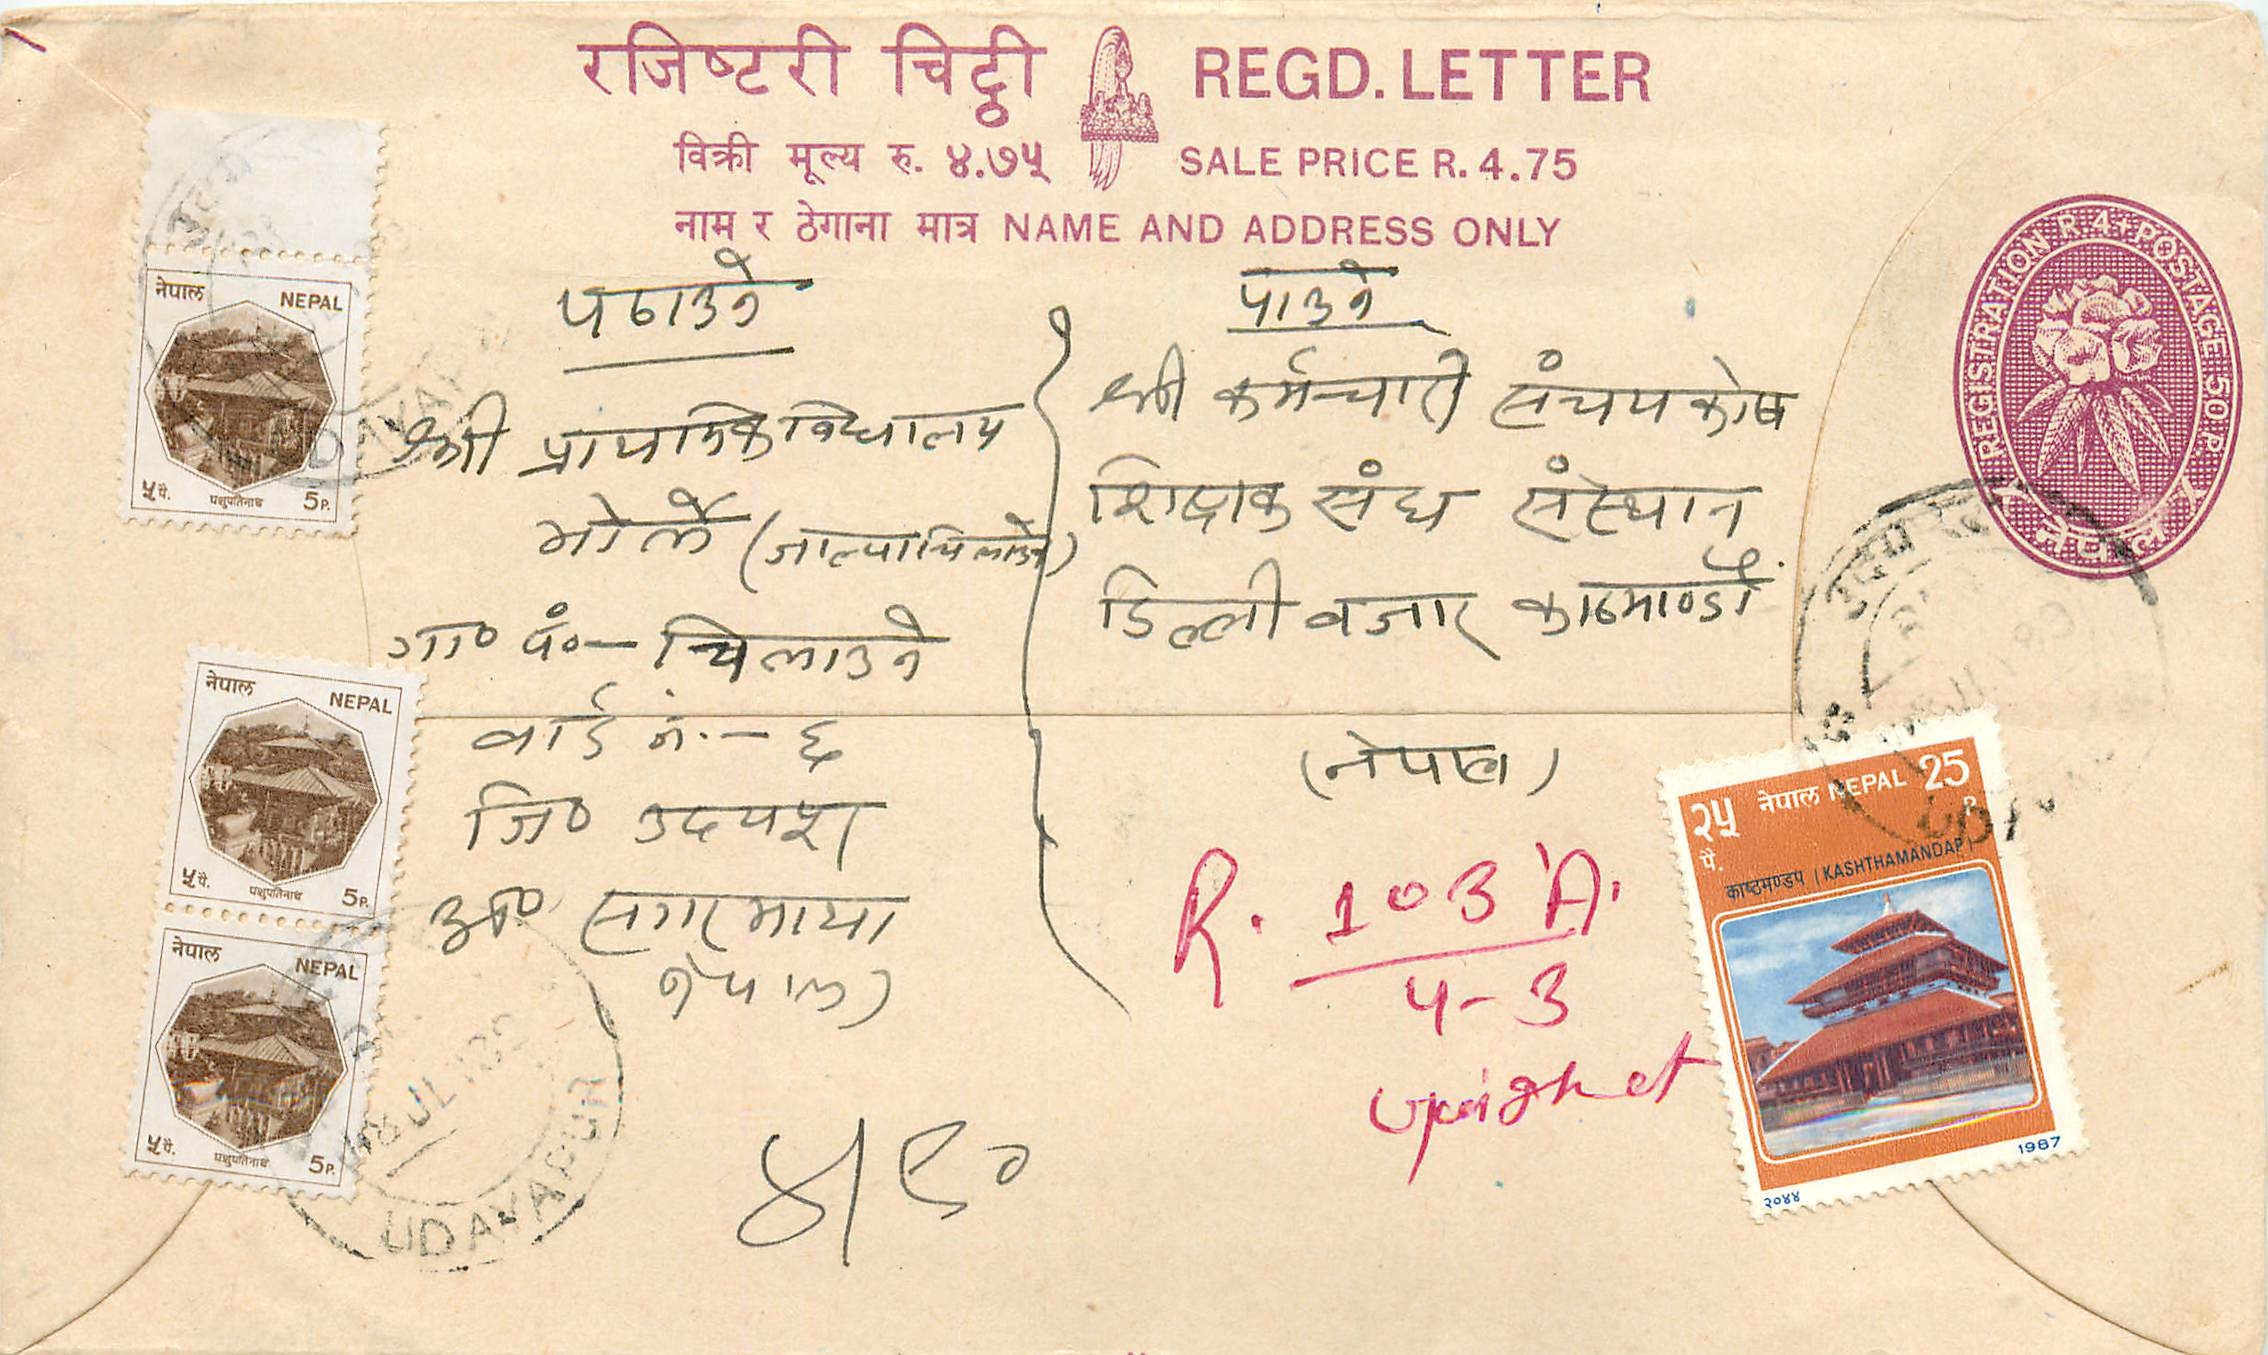 रजिष्टरी चिट्ठी REGD. LETTER
विक्री मूल्य रु. ४.७५ SALE PRICE R. 4.75
नाम र ठेगाना मात्र NAME AND ADDRESS ONLY
REGISTRATION R.4+POSTAGE 50 P.
नेपाल
पठाउने
श्री प्राथमिक विद्यालय
(जाल्पाचिलाउने)
गा० पं०– चिलाउने
वार्ड नं.– ६
जि० उदयपुर
अं० सगरमाथा
नेपाल)
पाउने
श्री कर्मचारी संचयकोष
शिक्षक संघ संस्थान
डिल्ली बजार काठमाण्डौं
(नेपाल)
R. 103 'A'
4-3
४|९०
नेपाल NEPAL
५ पै. पशुपतिनाथ 5 P.
नेपाल NEPAL
५ पै. पशुपतिनाथ 5 P.
नेपाल NEPAL
५ पै. पशुपतिनाथ 5 P.
२५ पै. नेपाल NEPAL 25 P.
काष्ठमण्डप (KASHTHAMANDAP)
२०४४ 1987
UDAYAPUR
UDAYAPUR